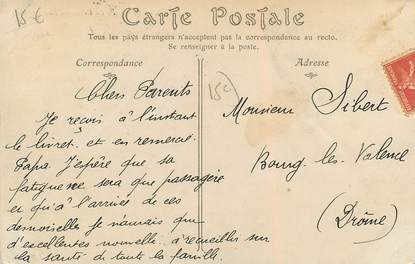 15 €
Carte Postale
Tous les pays étrangers n'acceptent pas la correspondance au recto.
Se renseigner à la poste.
Correspondance
Adresse
15c
Chers Parents
Je reçois à l'instant
le livret et en remercie
Papa. J'espère que sa
fatigue ne sera que passagère
et qu'à l'arrivée de ces
demoiselles je n'aurais que
d'excellentes nouvelles à recueillir sur
la santé de toute la famille.
Monsieur Sibert
Bourg-les-Valence
(Drôme)